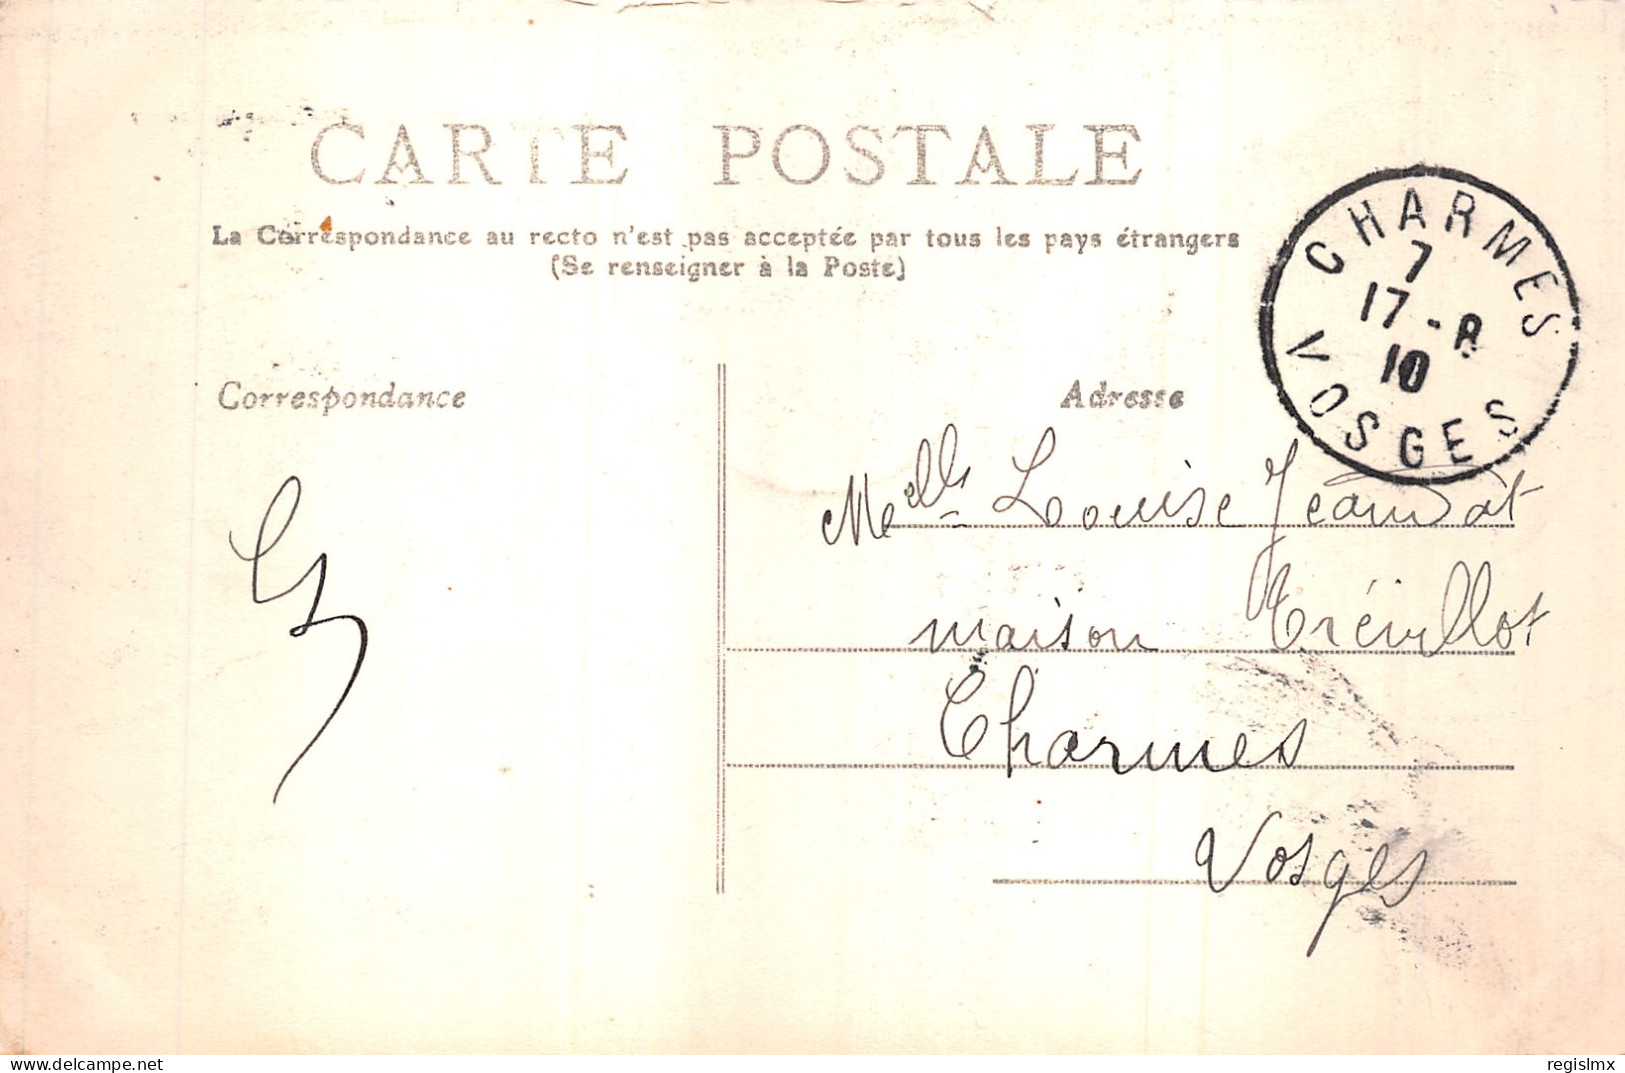 CARTE POSTALE
La Correspondance au recto n'est pas acceptée par tous les pays étrangers
(Se renseigner à la Poste)
CHARMES
7
17 - 8
10
VOSGES
Correspondance
Adresse
Melle Louise Jeandat
maison Trévillot
Charmes
Vosges
delcampe.net
regislmx